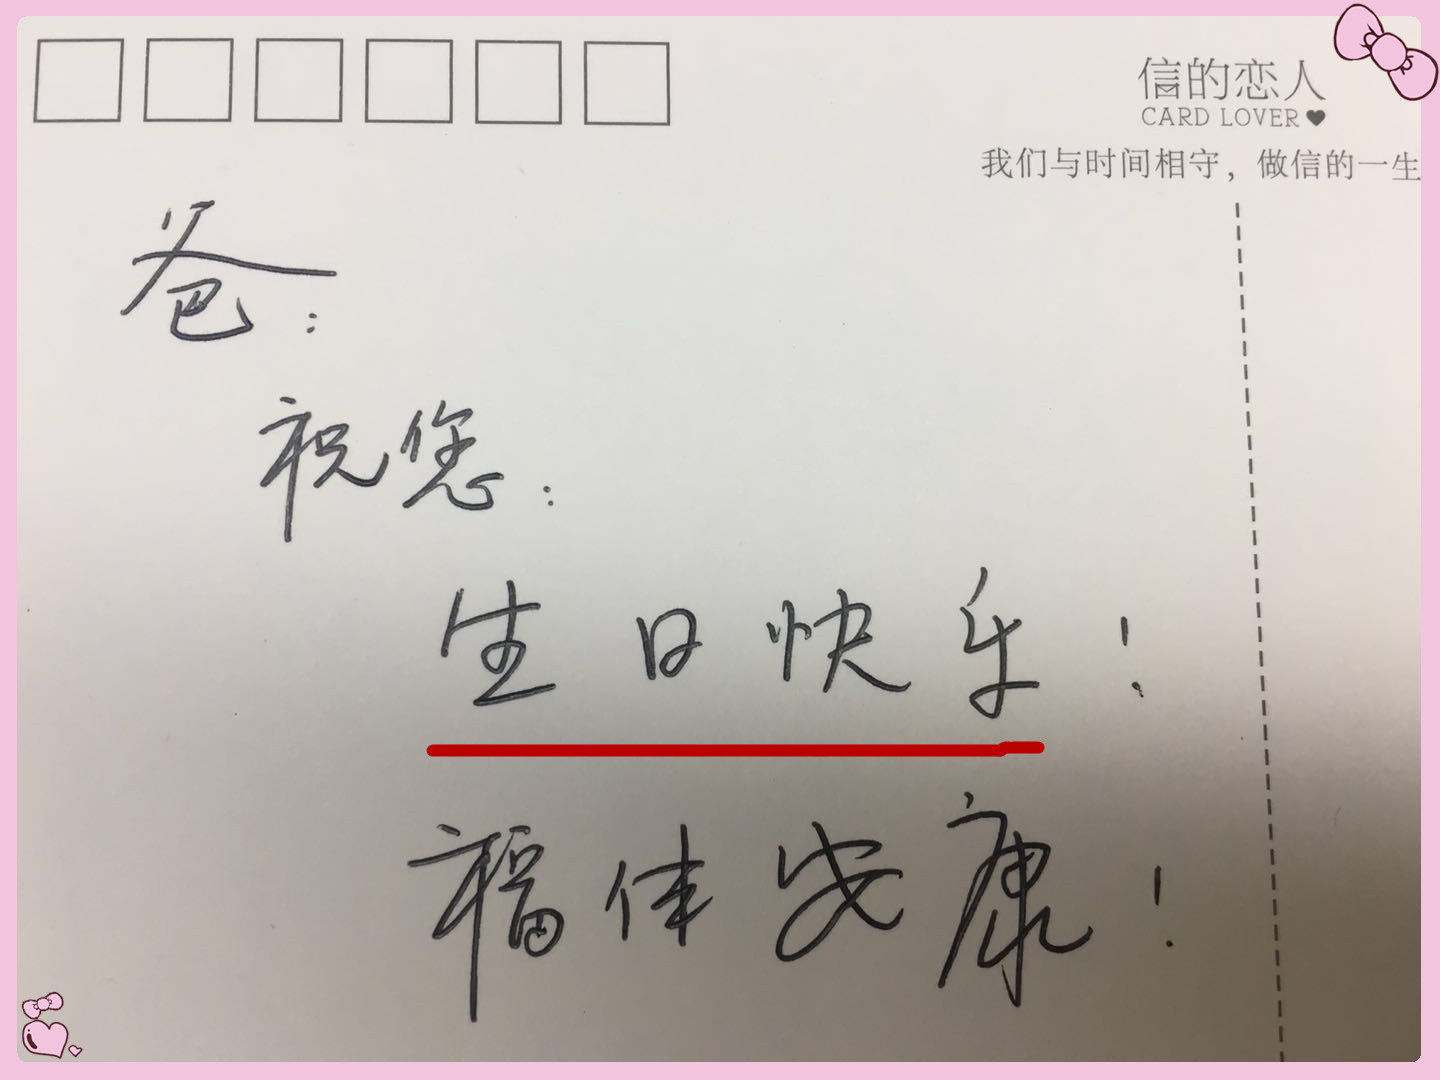 信的恋人
CARD LOVER
我们与时间相守，做信的一生
爸：
祝您：
生日快乐！
福体安康！